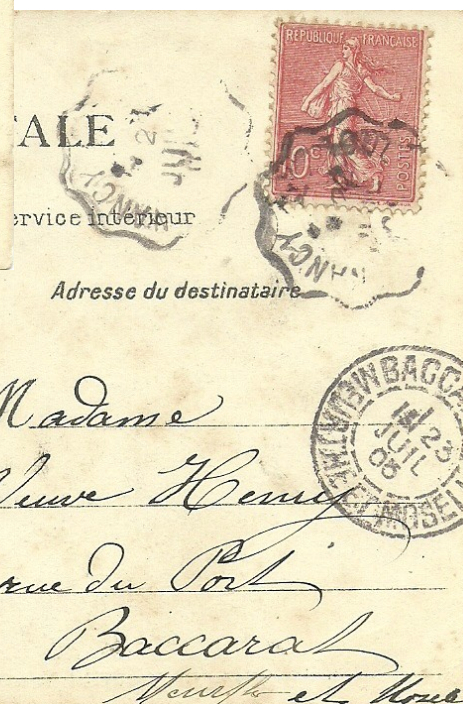 RÉPUBLIQUE FRANÇAISE
10 c
POSTES
TALE
21
JUIL
NANCY
NANCY
service intérieur
Adresse du destinataire
BACCA
1E 23
JUIL
05
MEURTHE ET MOSELL
Madame
Veuve Henry
rue du Port
Baccarat
Meurthe et Mosel